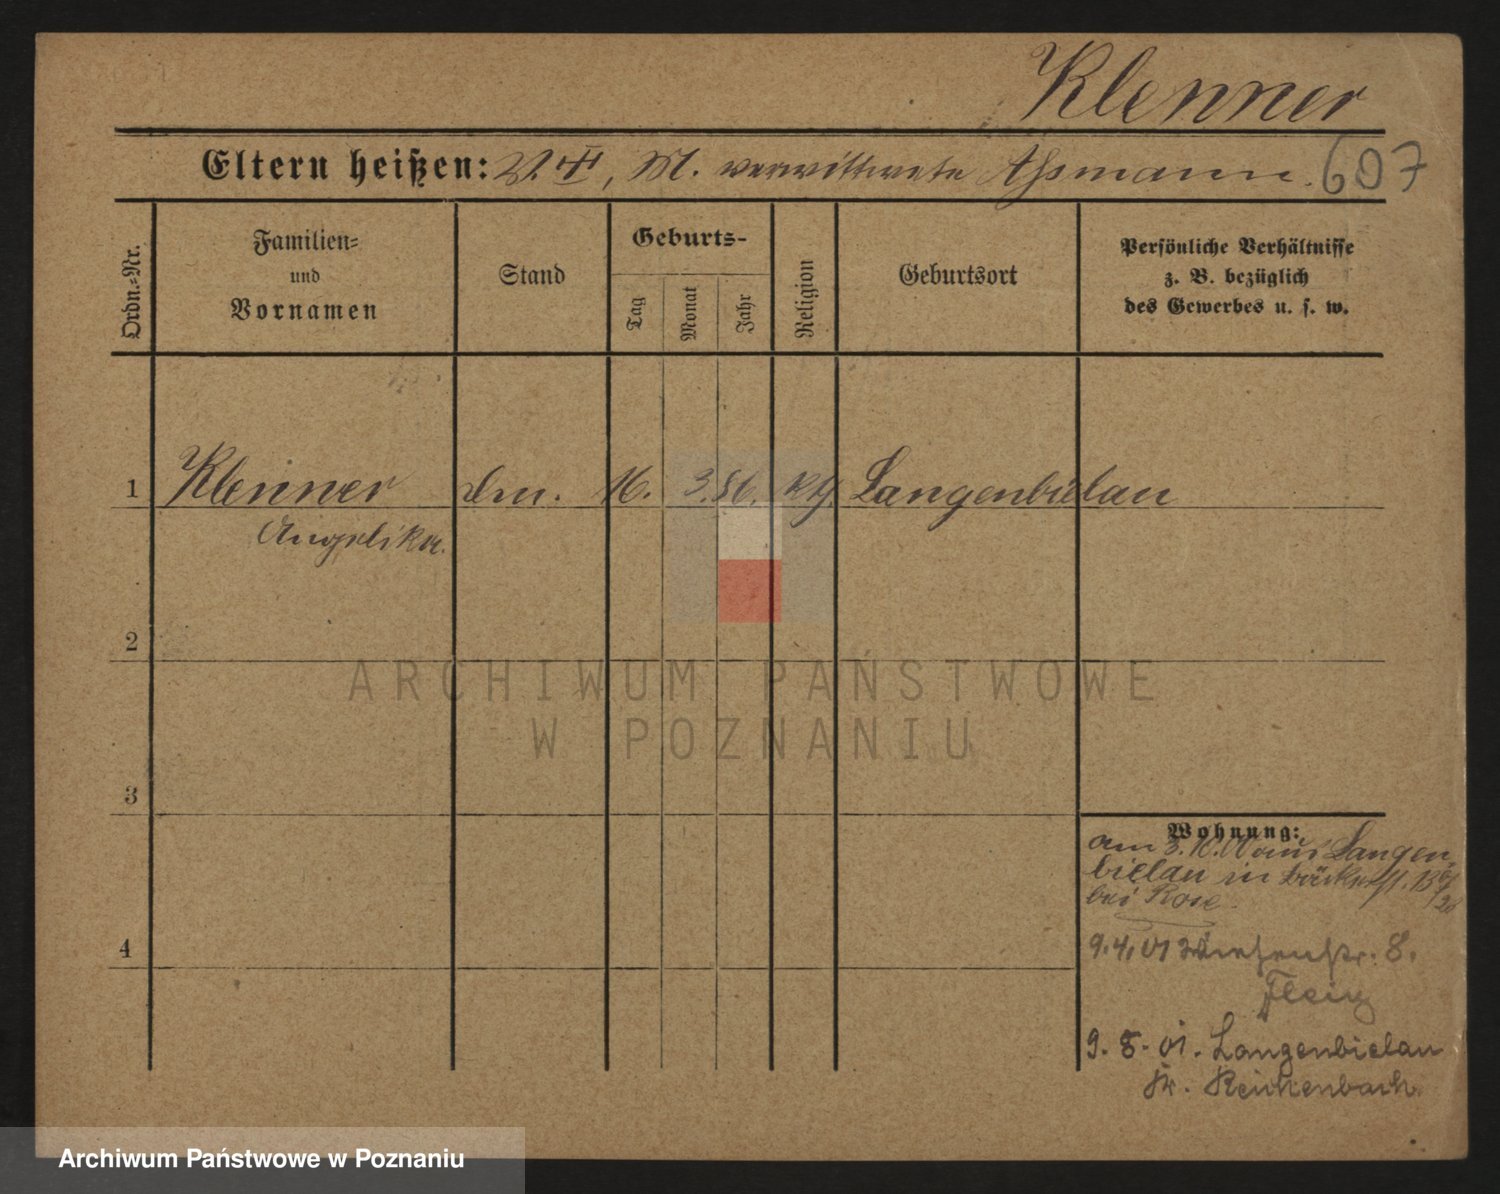 Klenner
Eltern heißen: V. ‡, M. verwittwete Aßmann.
607
Ordn.-Nr.
Familien-
und
Vornamen
Stand
Geburts-
Tag
Monat
Jahr
Religion
Geburtsort
Persönliche Verhältnisse
z. B. bezüglich
des Gewerbes u. s. w.
1 Klenner 16. 3. 86. kth. Langenbielau
Angelika.
2
3
4
Wohnung:
am 3.10.00 aus Langen-
bielau in Bäckerst. 13
bei Rose
9.4.01 Wiesenstr. 8.
9.8.01. Langenbielau
Kr. Reichenbach.
ARCHIWUM PAŃSTWOWE
W POZNANIU
Archiwum Państwowe w Poznaniu